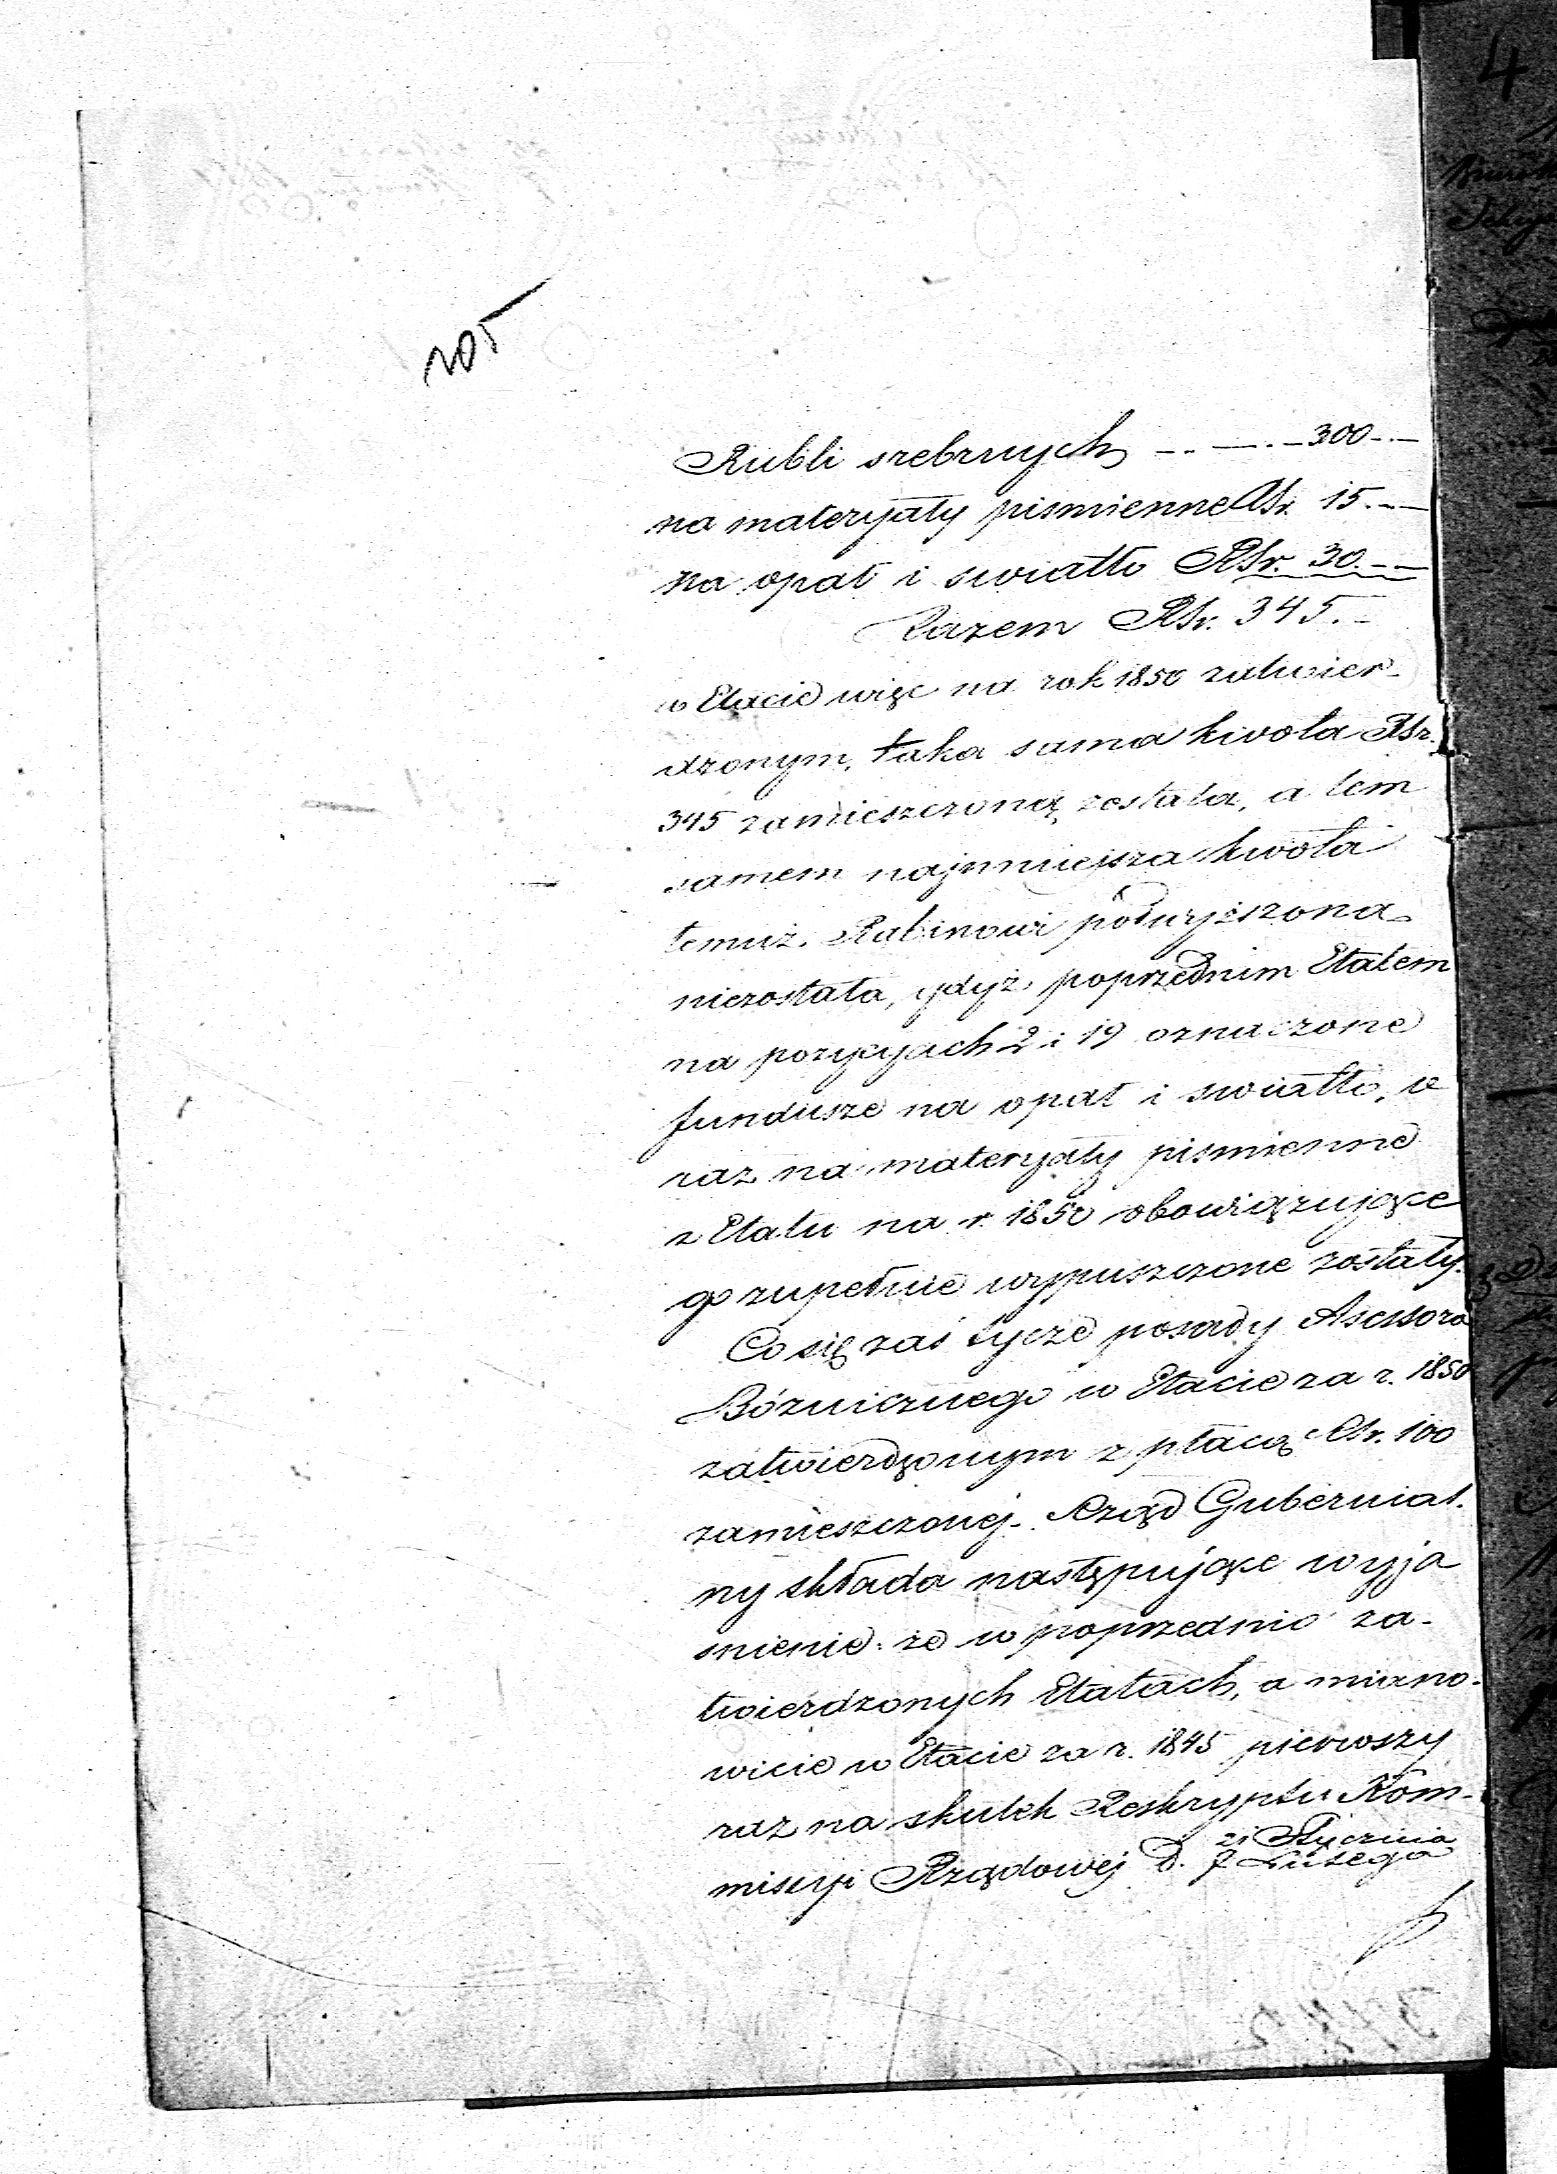 205
Rubli srebrnych - . — . - 300 - . —
na materyały pismienne RSr. 15. - —
na opał i swiatło RSr. 30. - —
Razem RSr. 345. -
w Etacie więc na rok 1850 zatwier-
dzonym, taka sama kwota RSr.
345 zamieszczoną została, a tem
samem najmniejsza kwota
temuż Rabinowi podwyższona
niezostała, gdyż poprzednim Etatem
na pozycyach 2 i 19 oznaczone
fundusze na opał i swiatło, o
raz na materyały pismienne
z Etatu na r. 1850 obowiązujące
go zupełnie wypuszczone zostały.
Co się zaś tycze posady Assessora
Bóżnicznego w Etacie za r. 1850
zatwierdzonym z płacą RSr. 100
zamieszczonej - Rząd Gubernial.
ny składa następujące wyja
snienie: że w poprzednio za-
twierdzonych Etatach, a miano-
wicie w Etacie za r. 1845 pierwszy
raz na skutek Reskryptu Kom-
missyi Rządowej D. 21 Stycznia
Lutego
4